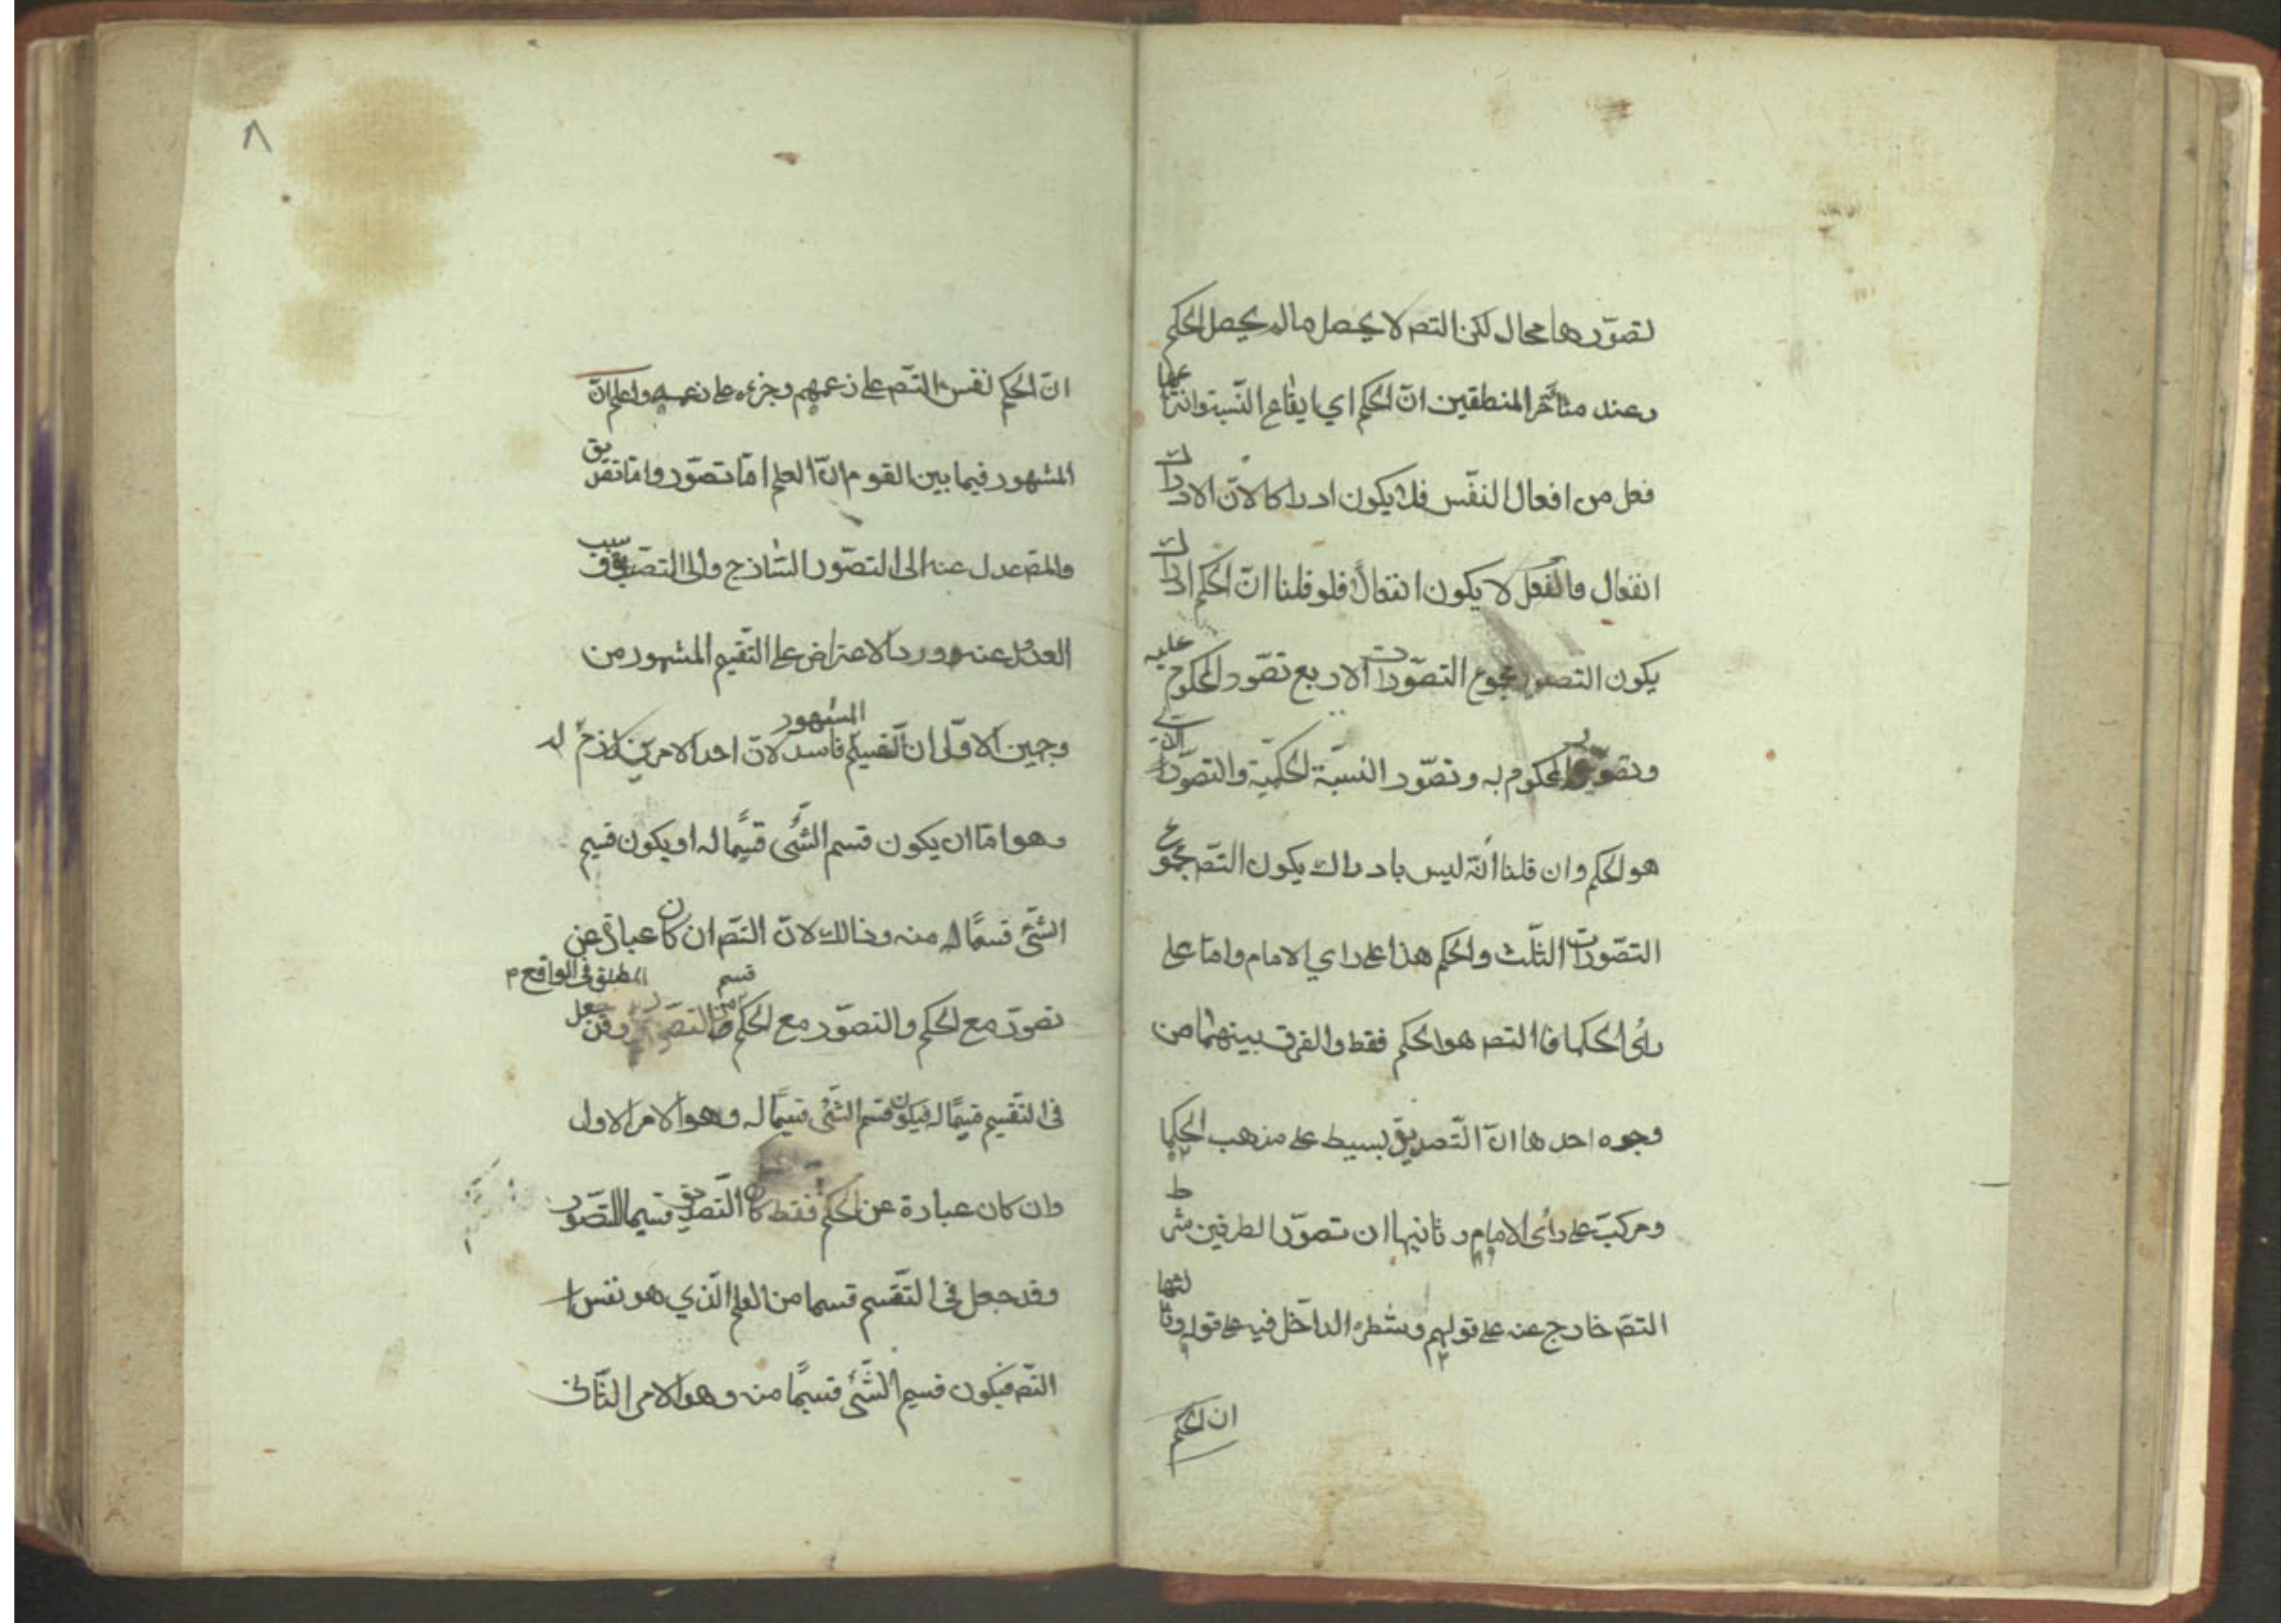 لتصوّرها محال لكن التصـ لا يحصل مالم يحصل الحكم
وعند متأخر المنطقين انّ الحكم اي ايقاع النّسبة وانتزاعها
فعل من افعال النفّس فلا يكون ادراكا لانّ الادراك
انفعال والفعل لا يكون انفعالاً فلو قلنا انّ الحكم ادراك
يكون التصديق مجموع التصوّرات الاربع تصّور المحكوم عليه
وتصوّر المحكوم به وتصّور النسبة الحكميّة والتصوّر الّذي
هو الحكم وان قلنا انّه ليس بادراك يكون التصـ مجموع
التصّورات الثلّث والحكم هذا على راي الامام وامّا على
رأى الحكما فا التصـ هو الحكم فقط والفرق بينهما من
وجوه احدها انّ التّصديق بسيط على مذهب الحكما
ومركبّ على رأى الامام وثانيها ان تصوّر الطرفين شرط
التصـ خارج عنه على قولهم وشطره الداخل فيه على قوله وثالثها
ان الحكم
٨
انّ الحكم نفس التصـ على زعمهم وجزءه على زعمه واعلم انّ
المشهور فيما بين القوم انّ العلم امّا تصوّر وامّا تصديق
والمصـ عدل عنه الى التصوّر السّاذج والى التصديق وسبب
العدول عنه ورود الاعتراض على التّقسيم المشهور من
وجهين الاوّل انّ التقسيم المشهور فاسد لانّ احد الامرين لازم له
وهو امّا ان يكون قسم الشّئ قسيمًا له او يكون قسيم
الشّئ قسمًا منه وذالك لانّ التصـ ان كان عبارة عن
تصوّر مع الحكم والتصوّر مع الحكم قسم من التصوّر المطلق في الواقع وقد جعل
في التّقسيم قسيمًا له فيكون قسم الشّئ قسيمًا له وهو الامر الاول
وان كان عبارة عن الحكم فقط كان التّصديق قسيما للتصّور
وقد جعل في التّقسيم قسما من العلم الّذي هو نفس
التصـ فيكون قسيم الشّئ قسمًا منه وهو الامر الثّاني